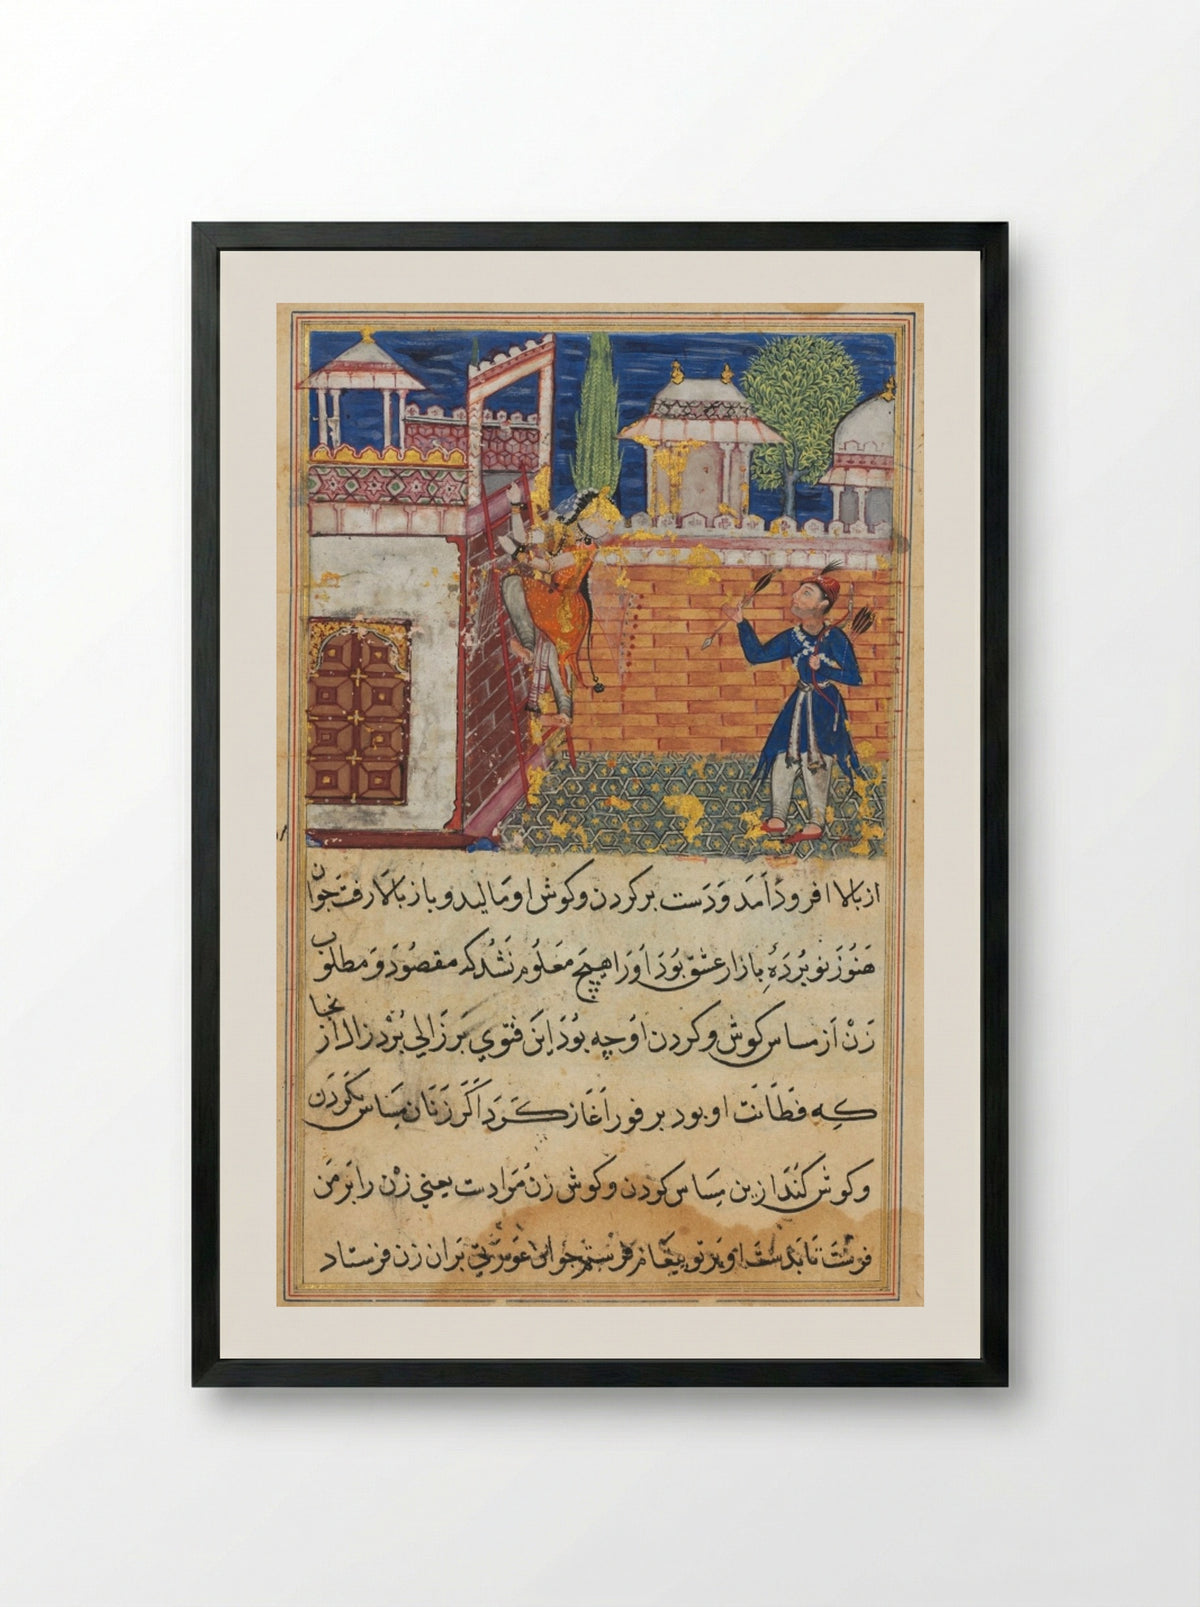 از بالا افرود آمد و دست بر کردن و کوش او مالید و باز بالا رفت جوان
هنوز نو بردهٔ بازار عشق بود او را هیچ معلوم نشد که مقصود و مطلوب
زن از مساس کوش و کردن او چه بود این فتوی بر زالی برد زال از نجا
که فطانت او بود بر فور آغاز کرد اگر زنان مساس کردن
و کوش کنند ازین مساس کردن و کوش زن مرادست یعنی زن را بر من
فرست تا بدست او بر تو فرستم جوان عورتی بران زن فرستاد